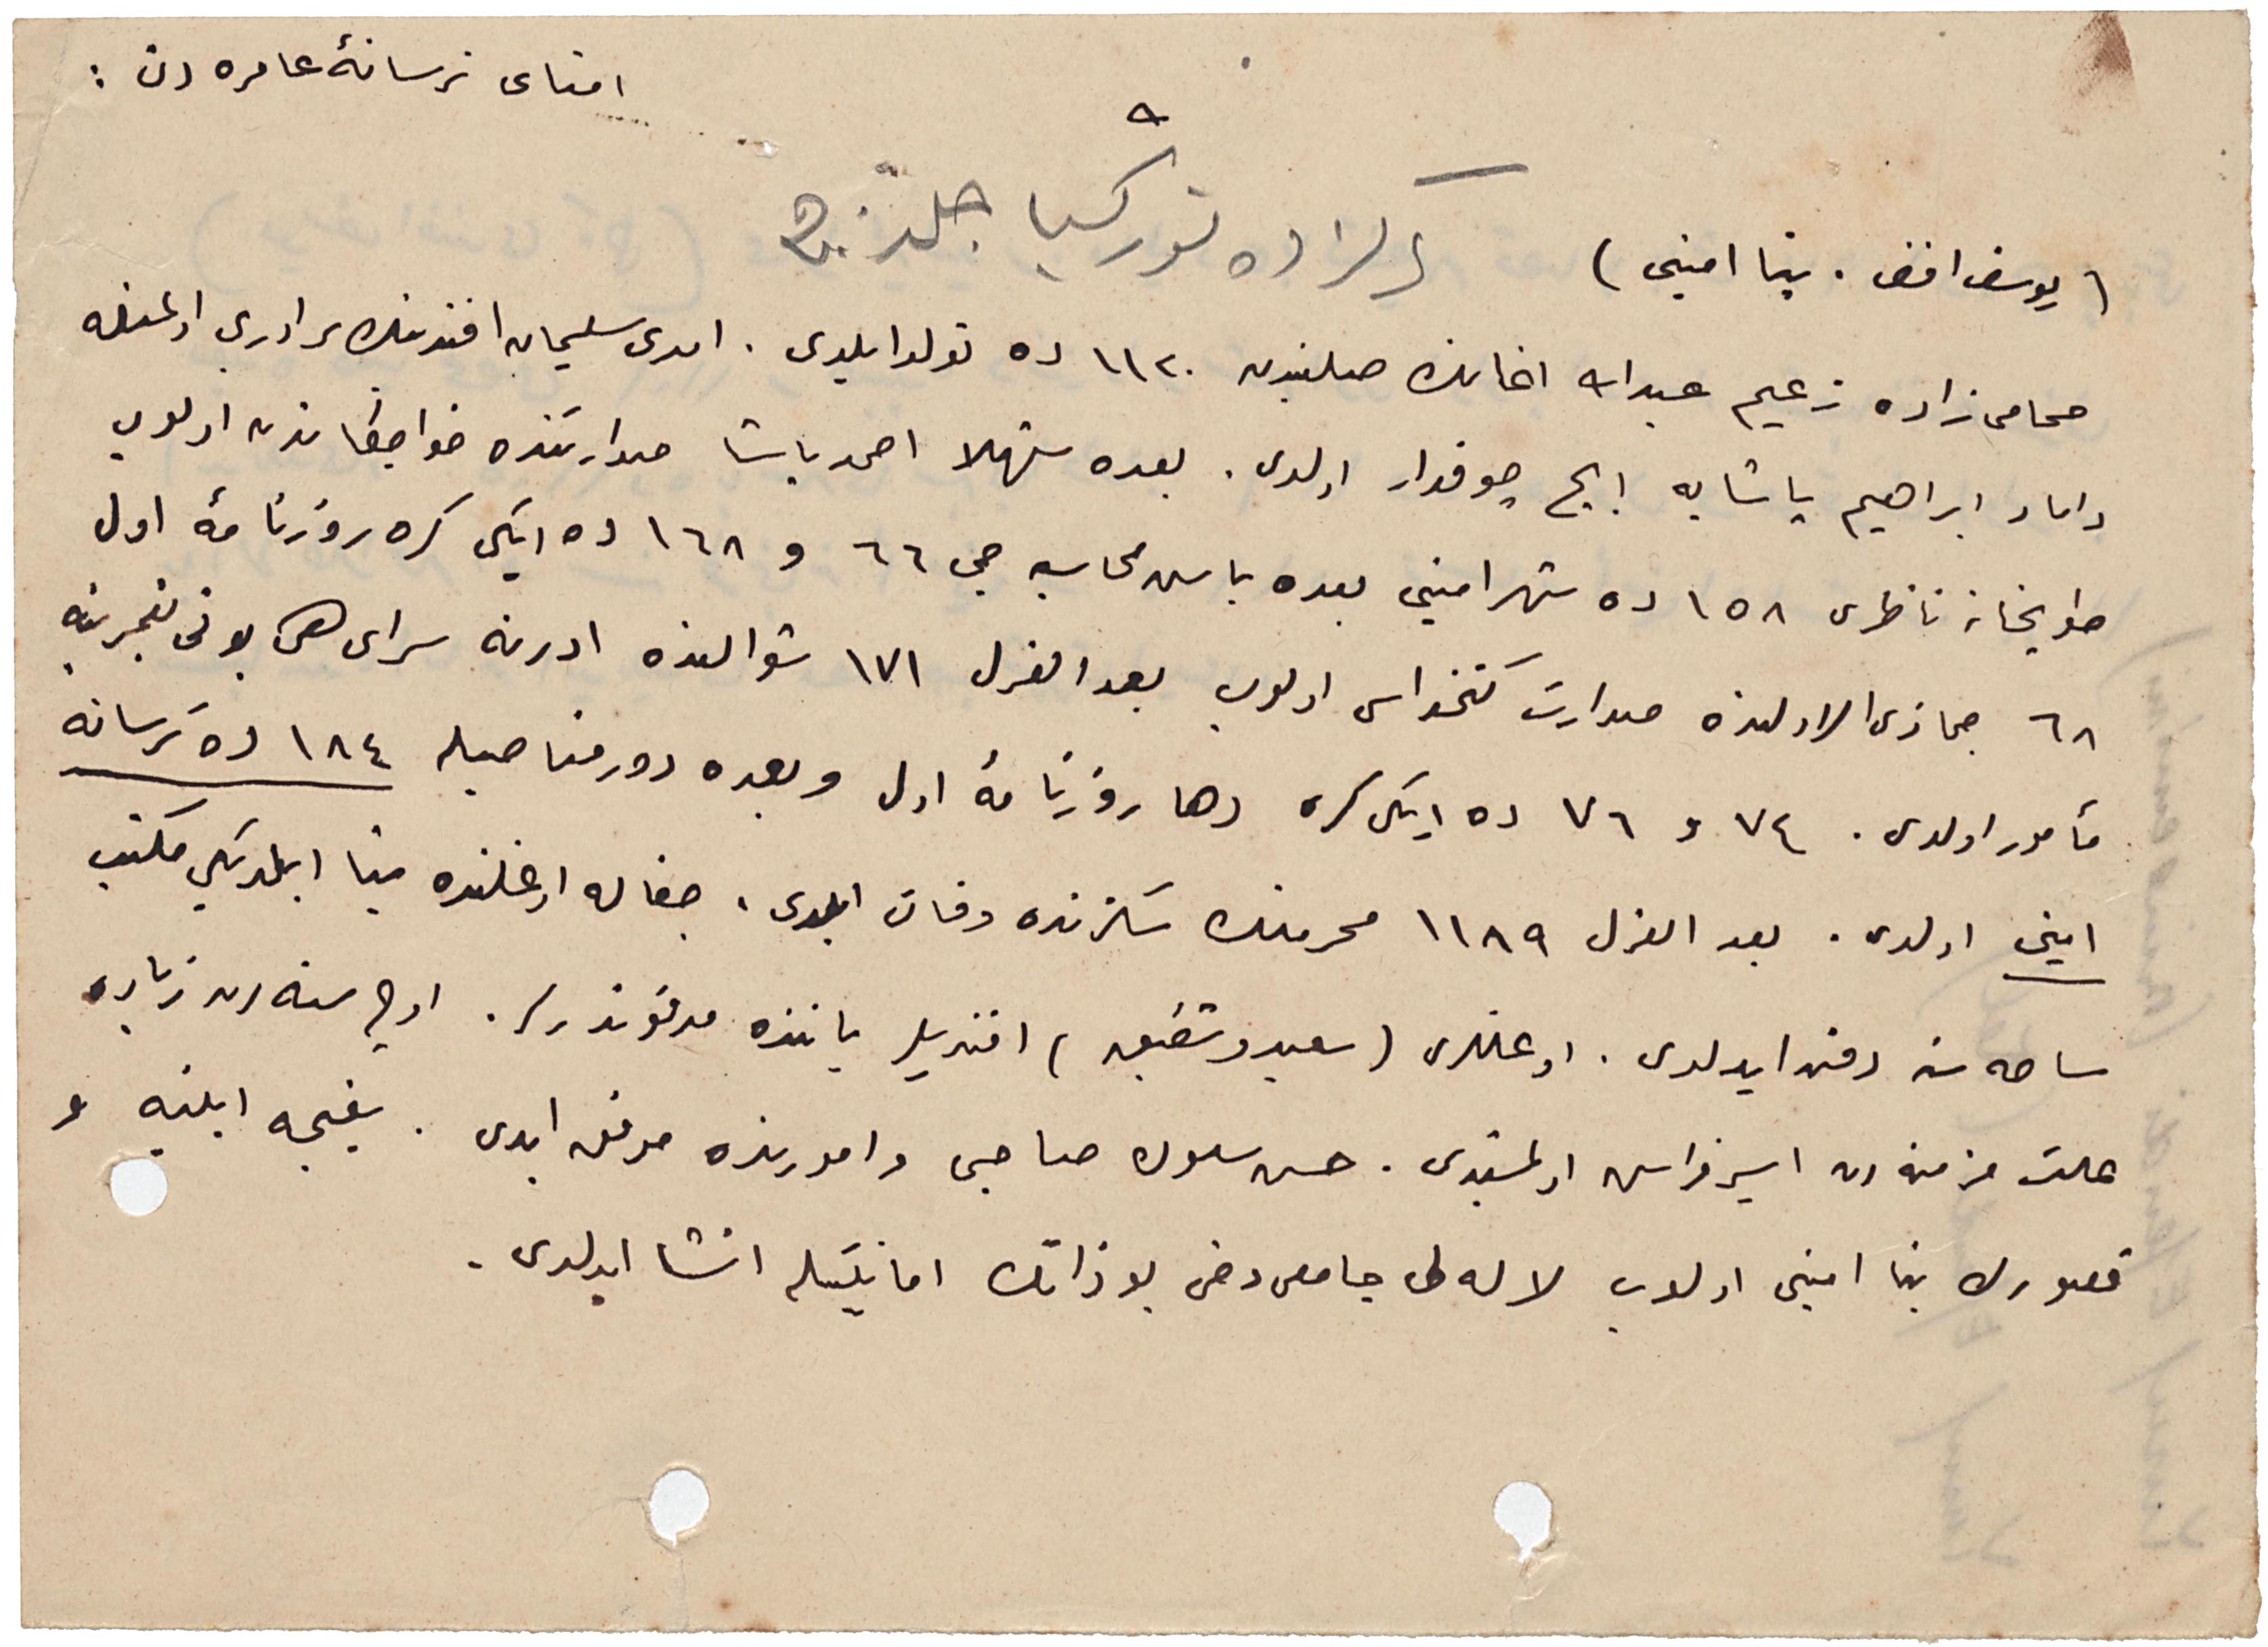 امنای ترسانهٔ عامره دن :
٩
( یوسف افندی . بنا امینی )
محاسی زاده زعیم عبدالله اغانك صلبندن ١١٢٠ ده تولد ایلدی . امدی سلیمان افندینك برادری اولمغله
داماد ابراهیم پاشایه ایچ چوقدار اولدی . بعده شهلا احمد پاشا صدارتنده خواجكاندن اولوب
طوپخانه ناظری ١٥٨ ده شهر امینی بعده باش محاسبه جی ٦٦ و ١٦٨ ده ایكی كره روزنامهٔ اول
٦٨ جماذی الاولنده صدارت كتخداسی اولوب بعد العزل ١٧١ شوالنده ادرنه سرای همایونی تعمیرینه
مأمور اولدی . ٧٤ و ٧٦ ده ایكی كره دها روزنامهٔ اول و بعده دور مناصبله ١٨٤ ده ترسانه
امینی اولدی . بعد العزل ١١٨٩ محرمنك سكزنده وفات ایلدی ، جغاله اوغلنده بنا ایلدیكی مكتب
ساحه سنه دفن ایدلدی . اوغللری ( سعید و شفیق ) افندیلر یاننده مدفوندرلر . اوچ سنه دن زیاده
علت مزمنه دن اسیر فراش اولمشدی . حسن سلوك صاحبی و امورنده موفق ایدی . یغیجه ابنیه و
قصورك بنا امینی اولوب لاله لی جامعی دخی بو ذاتك امانتیله انشا ایدلدی .